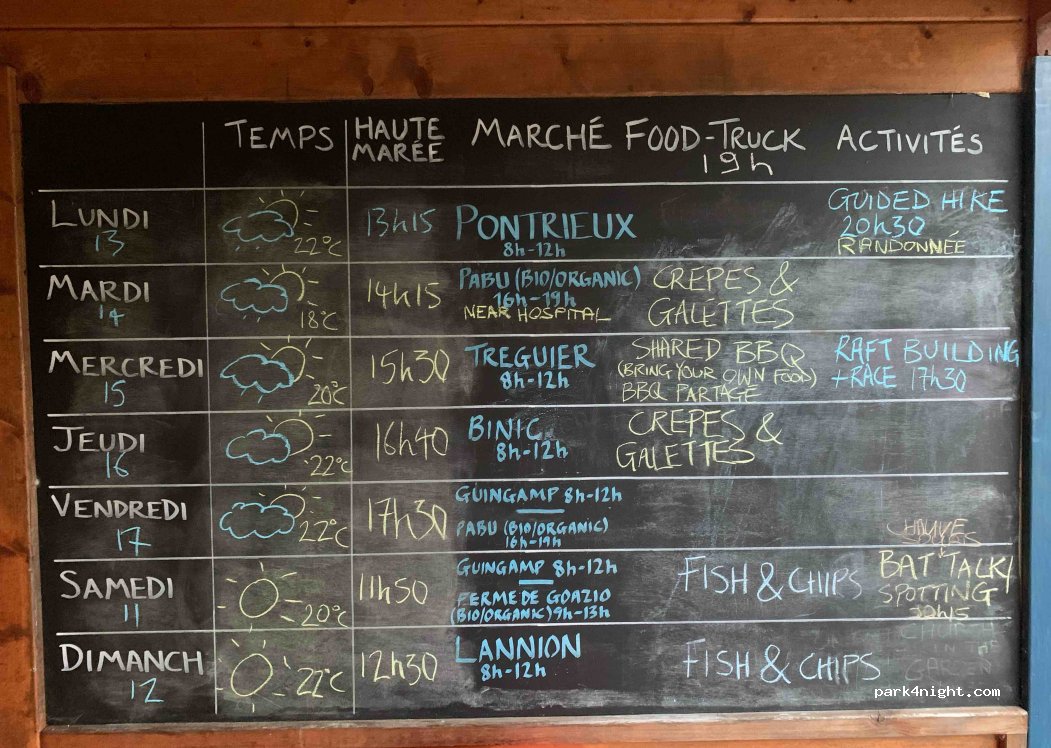 TEMPS HAUTE MARÉE MARCHÉ FOOD-TRUCK 19h ACTIVITÉS
LUNDI 13 22°C 13h15 PONTRIEUX 8h-12h GUIDED HIKE 20h30 RANDONNÉE
MARDI 14 18°C 14h15 PABU (BIO/ORGANIC) 16h-19h NEAR HOSPITAL CREPES & GALETTES
MERCREDI 15 20°C 15h30 TREGUIER 8h-12h SHARED BBQ (BRING YOUR OWN FOOD) BBQ PARTAGE RAFT BUILDING +RACE 17h30
JEUDI 16 22°C 16h40 BINIC 8h-12h CREPES & GALETTES
VENDREDI 17 22°C 17h30 GUINGAMP 8h-12h PABU (BIO/ORGANIC) 16h-19h
SAMEDI 11 20°C 11h50 GUINGAMP 8h-12h FERME DE GOAZIO (BIO/ORGANIC) 9h-13h FISH & CHIPS BAT TALK/ SPOTTING
DIMANCH 12 22°C 12h30 LANNION 8h-12h FISH & CHIPS
park4night.com